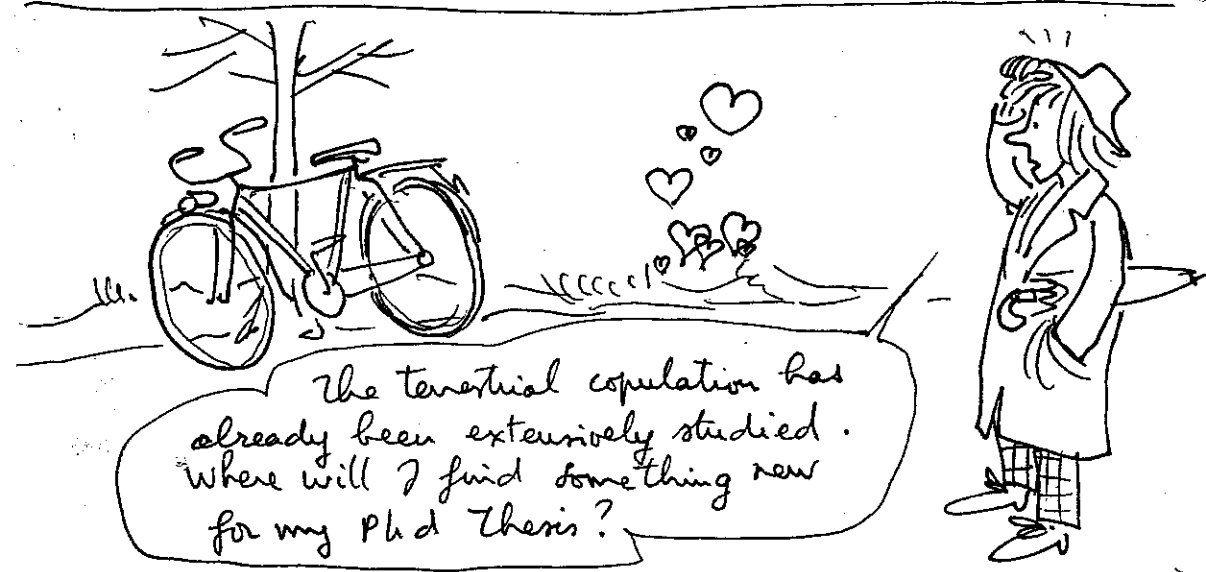 The terrestrial copulation has
already been extensively studied.
Where will I find something new
for my Phd Thesis?